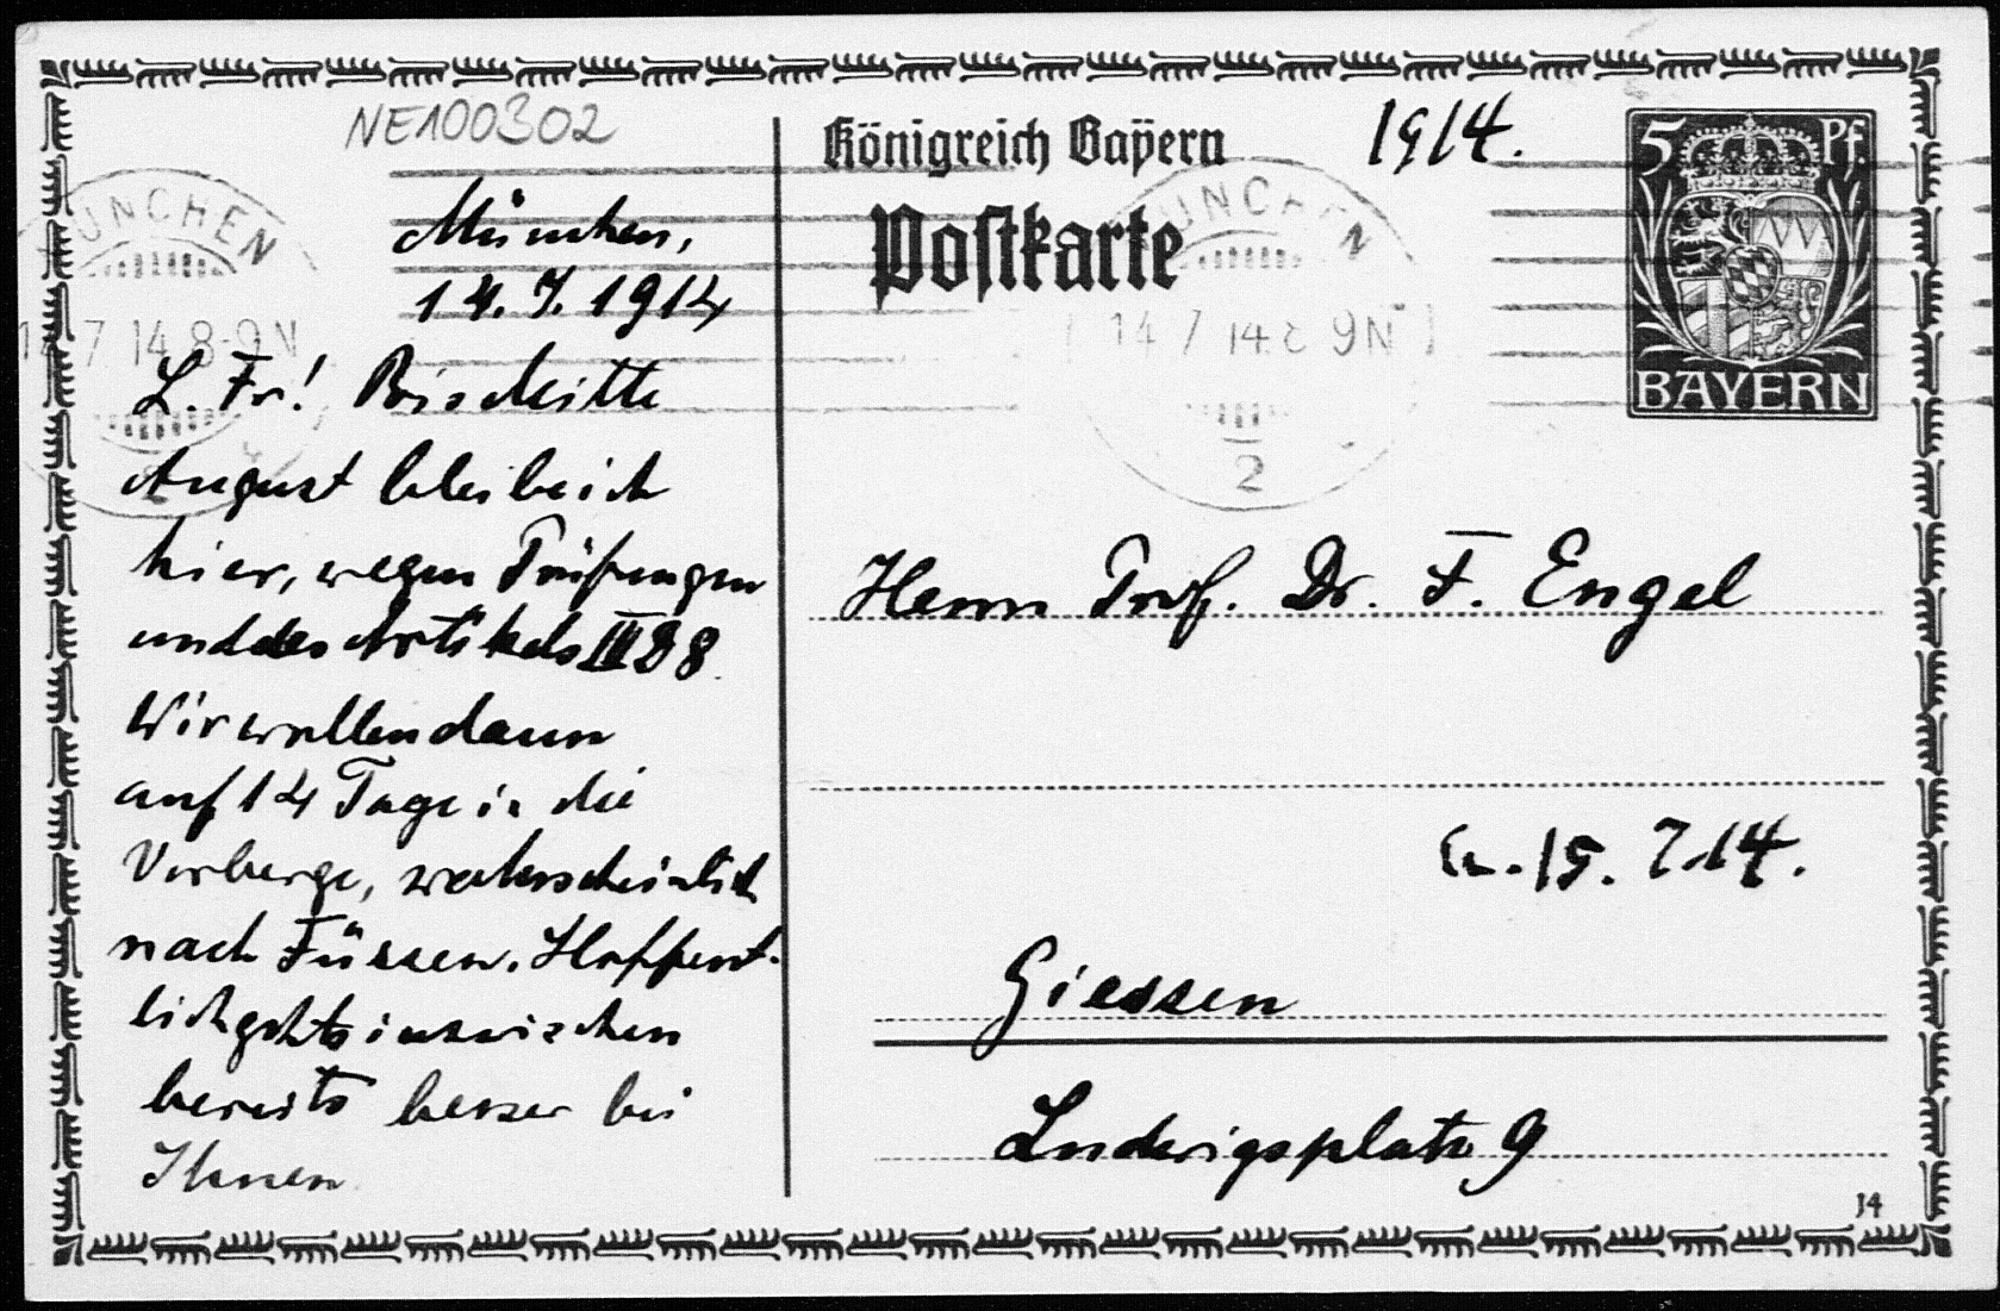 NE100302
München,
14.7.1914
L. Fr! Bis Mitte
August bleibe ich
hier, wegen Prüfungen
und des Artikels III D 8.
Wir wollen dann
auf 14 Tage in die
Vorberge, wahrscheinlich
nach Füssen. Hoffent-
lich gehts inzwischen
bereits besser bei
Ihnen
MÜNCHEN
14 7 14 8-9 N
2
Königreich Bayern
Postkarte
1914.
5 Pf.
BAYERN
MÜNCHEN
14 7 14 8 9 N
2
Herrn Prof. Dr. F. Engel
15. 7 14.
Giessen
Ludwigsplatz 9
14